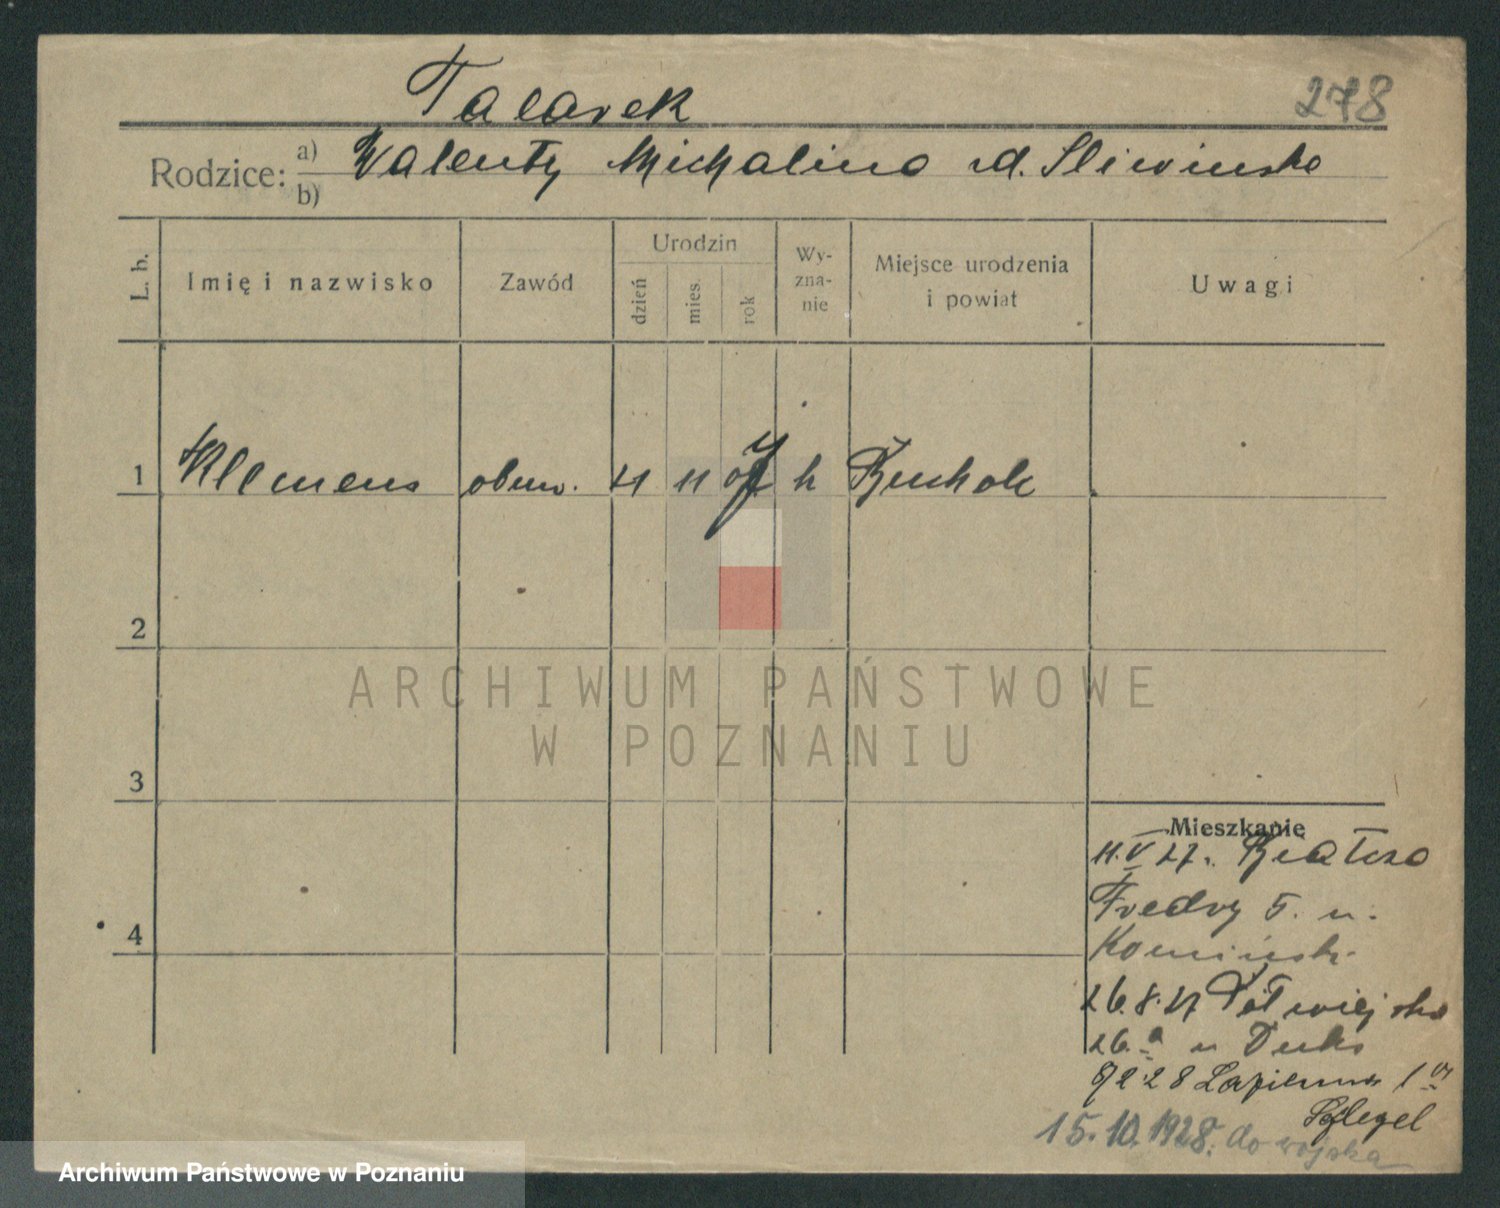 Talarek
278
Rodzice: a) Walenty Michalina rd. Sliwinska
b)
L. b.
Imię i nazwisko
Zawód
Urodzin
dzień
mies.
rok
Wy-
zna-
nie
Miejsce urodzenia
i powiat
Uwagi
1 Klemens obuw. 21 11 07 k
2
ARCHIWUM PAŃSTWOWE
W POZNANIU
3
4
Mieszkanie
11. V 27.
Fredry 5. u.
26.8.27 Półwiejska
26. a u
9 2 28 1
15.10.1928. do wojska
Archiwum Państwowe w Poznaniu